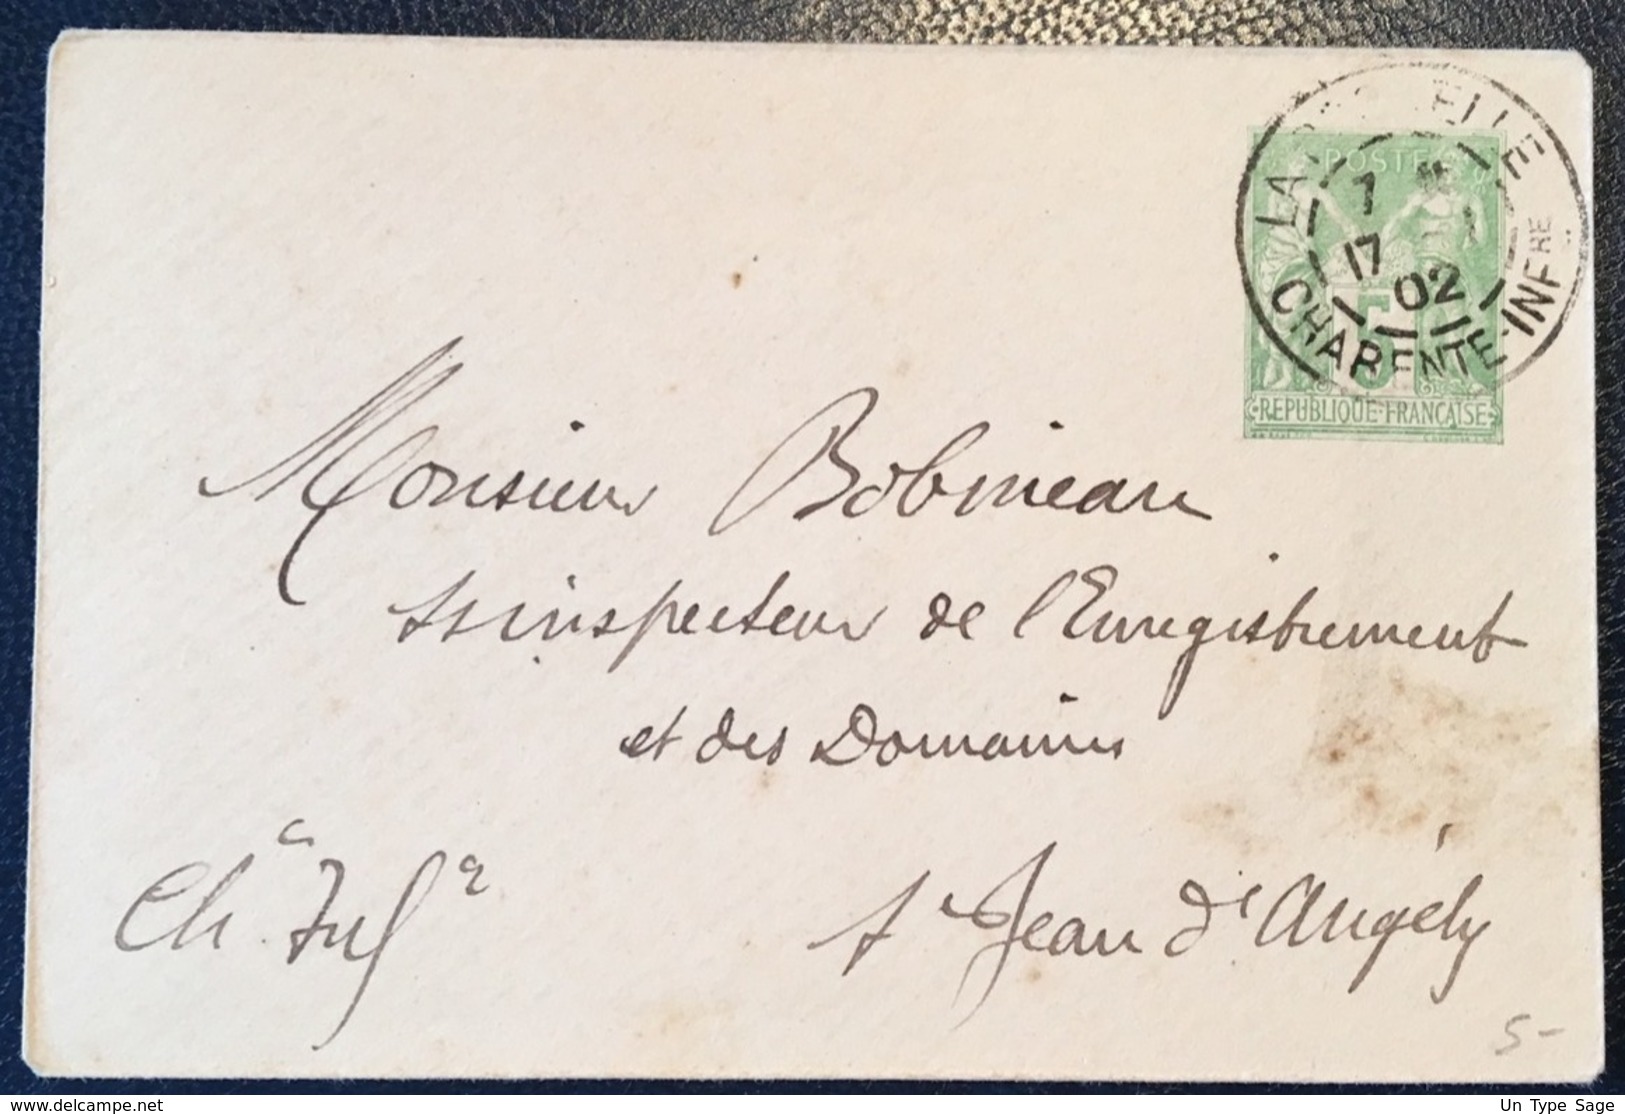 LA ROCHELLE
7
17 02
CHARENTE-INFRE
POSTE
5
REPUBLIQUE FRANÇAISE
Monsieur Bobineau
ssinspecteur de l'Enregistrement
et des Domaines
St Jean d'Angély
Che Infre
5-
delcampe.net
Un Type Sage